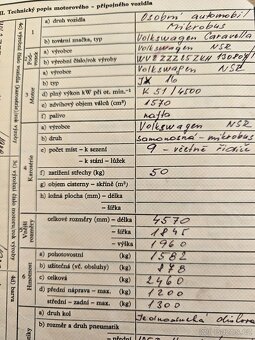 II. Technický popis motorového – přípojného vozidla
1 a) druh vozidla Osobní automobil
Mikrobus
b) tovární značka, typ Volkswagen Caravella
a) výrobce Volkswagen NSR
b) výrobní číslo
a) výrobce Volkswagen NSR
b) typ JX 16
d) plný výkon kW při ot. min.⁻¹ K 51/4500
e) zdvihový objem válců (cm³) 1570
f) palivo nafta
a) výrobce Volkswagen NSR
b) druh Samonosná - mikrobus
e) počet míst – k sezení 9 - včetně řidiče
– k stání – lůžek
f) zatížení střechy (kg) 50
g) objem cisterny – skříně (m³)
h) ložná plocha (mm) – délka
– šířka
celkové rozměry (mm) – délka 4570
– šířka 1845
– výška 1960
a) pohotovostní (kg) 1582
b) užitečná (vč. obsluhy) (kg) 878
c) celková (kg) 2460
d) přední náprava – max. (kg) 1200
střední – zadní – max. (kg) 1300
a) druh kol Jednoduchá disková
b) rozměr a druh pneumatik